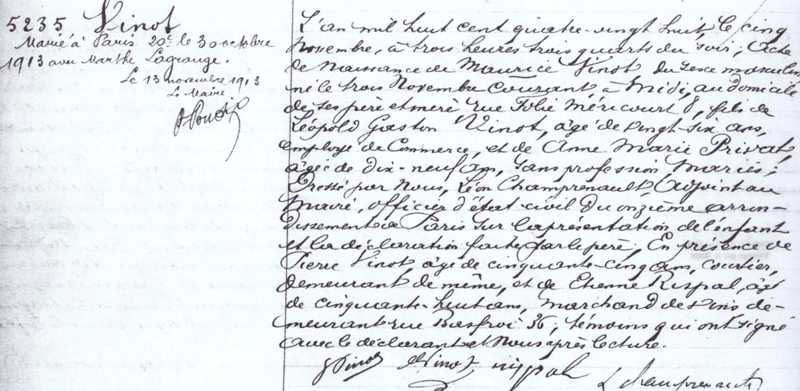 5235 Vinot
Marié à Paris 20e le 30 octobre
1913 avec Marthe Lagrange.
Le 13 novembre 1913
Le Maire,
L'an mil huit cent quatre-vingt huit, le cinq
Novembre, à trois heures trois quarts du soir; Acte
de Naissance de Maurice Vinot du sexe masculin
né le trois Novembre Courant, à Midi, au domicile
de ses père et mère rue Folie Méricourt 8, fils de
Léopold Gaston Vinot, âgé de vingt-six ans,
employé de Commerce, et de Anne Marie Privat,
âgée de dix-neuf ans, sans profession, mariés;
Dressé par Nous, Léon Champrenault Adjoint au
Maire, officier d'état-civil du onzième arron-
dissement de Paris sur la présentation de l'enfant
et la déclaration faite par le père; En présence de
Pierre Vinot âgé de cinquante-cinq ans, courtier,
demeurant de même, et de Etienne Rispal, âgé
de cinquante-huit ans, marchand de vins de-
meurant rue Basfroi 36, témoins qui ont signé
avec le déclarant et Nous après lecture.
Vinot Vinot rispal
L. Champrenault